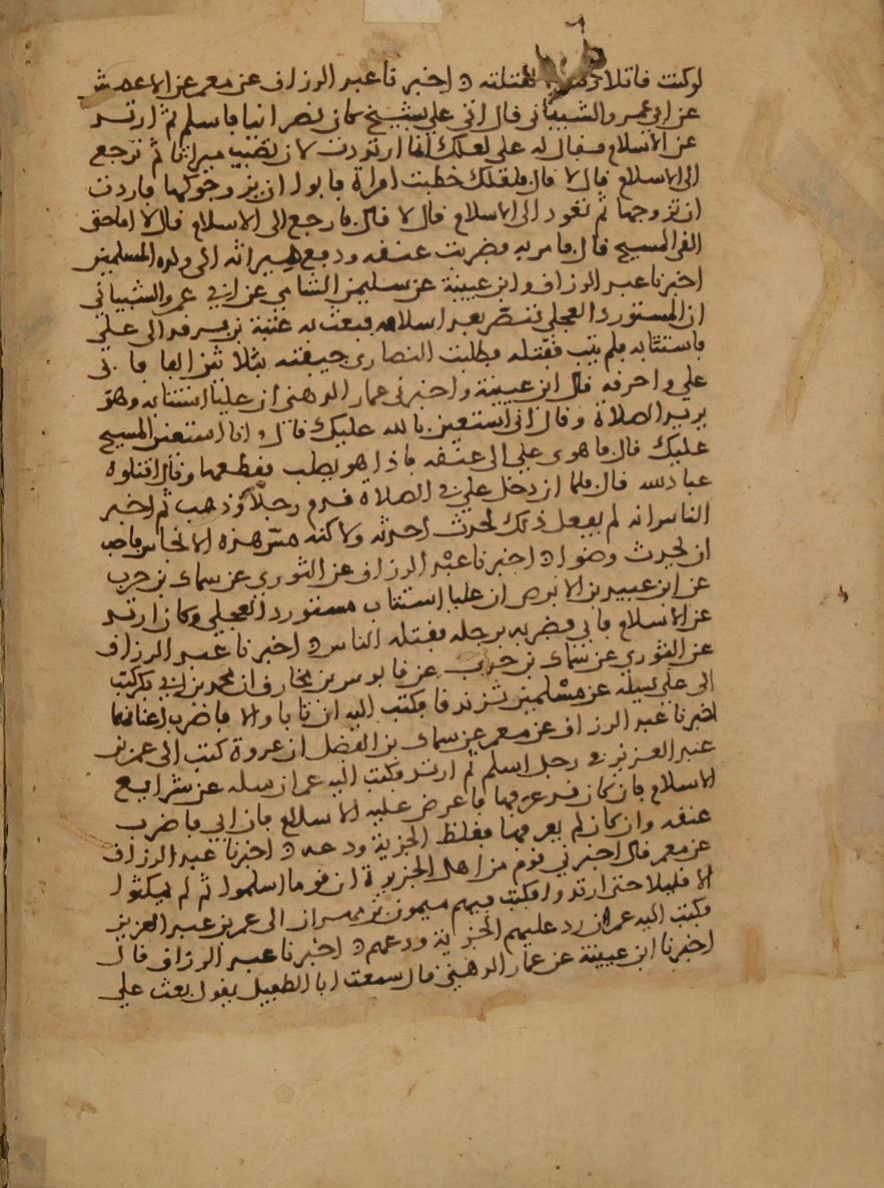 لو كنت قاتلا لقتلته اخبرنا عبد الرزاق عن معمر عن الاعمش
عن ابي عمرو الشيباني قال اتي علي بشيخ كان نصرانيا فاسلم ثم ارتد
عن الاسلام فقال له علي لعلك انما ارتددت لان تصيب ميراثا ثم ترجع
الى الاسلام قال لا قال فلعلك خطبت امراة فابوا ان يزوجوكها فاردت
ان تزوجها ثم تعود الى الاسلام قال لا قال فارجع الى الاسلام قال لا اما حتى
القى المسيح قال فامر به فضربت عنقه ودفع ميراثه الى ولده المسلمين
اخبرنا عبد الرزاق وابن عيينة عن سليمن الشامي عن ابي عمرو الشيباني
ان المستورد العجلي تنصر بعد اسلامه فبعث به عتبة بن فرقد الى علي
فاستتابه فلم يتب فقتله فطلبت النصارى جيفته بثلاثين الفا فابى
علي واحرقه قال ابن عيينة واخبرني عمار الدهني ان عليا استتابه وهو
يريد الصلاة وقال اني استعين بالله عليك قال وانا استعين المسيح
عليك قال فاهوى علي الى عنقه فاذا هو بصليب فقطعها وقال اقتلوه
عباد الله قال فلما ان دخل علي في الصلاة قدم رجلا وذهب ثم اخبر
الناس انه لم يفعل ذلك لحدث احدثه ولكنه مس هذه الانجاس فاحب
ان يحدث وضوا اخبرنا عبد الرزاق عن الثوري عن سماك بن حرب
عن ابن عبيد بن الابرص ان عليا استتاب مستورد العجلي وكان ارتد
عن الاسلام فابى فضربه برجله فقتله الناس اخبرنا عبد الرزاق
عن الثوري عن سماك بن حرب عن قابوس بن مخارق ان محمد بن ابي بكر كتب
الى علي يسله عن مسلمين تزندقا فكتب اليه ان تابا والا فاضرب اعناقهما
اخبرنا عبد الرزاق عن معمر عن سماك بن الفضل ان عروة كتب الى عمر بن
عبد العزيز في رجل اسلم ثم ارتد فكتب اليه عمر ان سله عن شرايع
الاسلام فان كان قد عرفها فاعرض عليه الاسلام فان ابى فاضرب
عنقه وان كان لم يعرفها فغلظ الجزية ودعه اخبرنا عبد الرزاق
عن معمر قال اخبرني قوم من اهل الجزيرة ان قوما اسلموا ثم لم يمكثوا
الا قليلا حتى ارتدوا فكتب فيهم ميمون بن مهران الى عمر بن عبد العزيز
فكتب اليه عمر ان رد عليهم الجزية ودعهم اخبرنا عبد الرزاق قال
اخبرنا ابن عيينة عن عمار الدهني قال سمعت ابا الطفيل يقول بعث علي